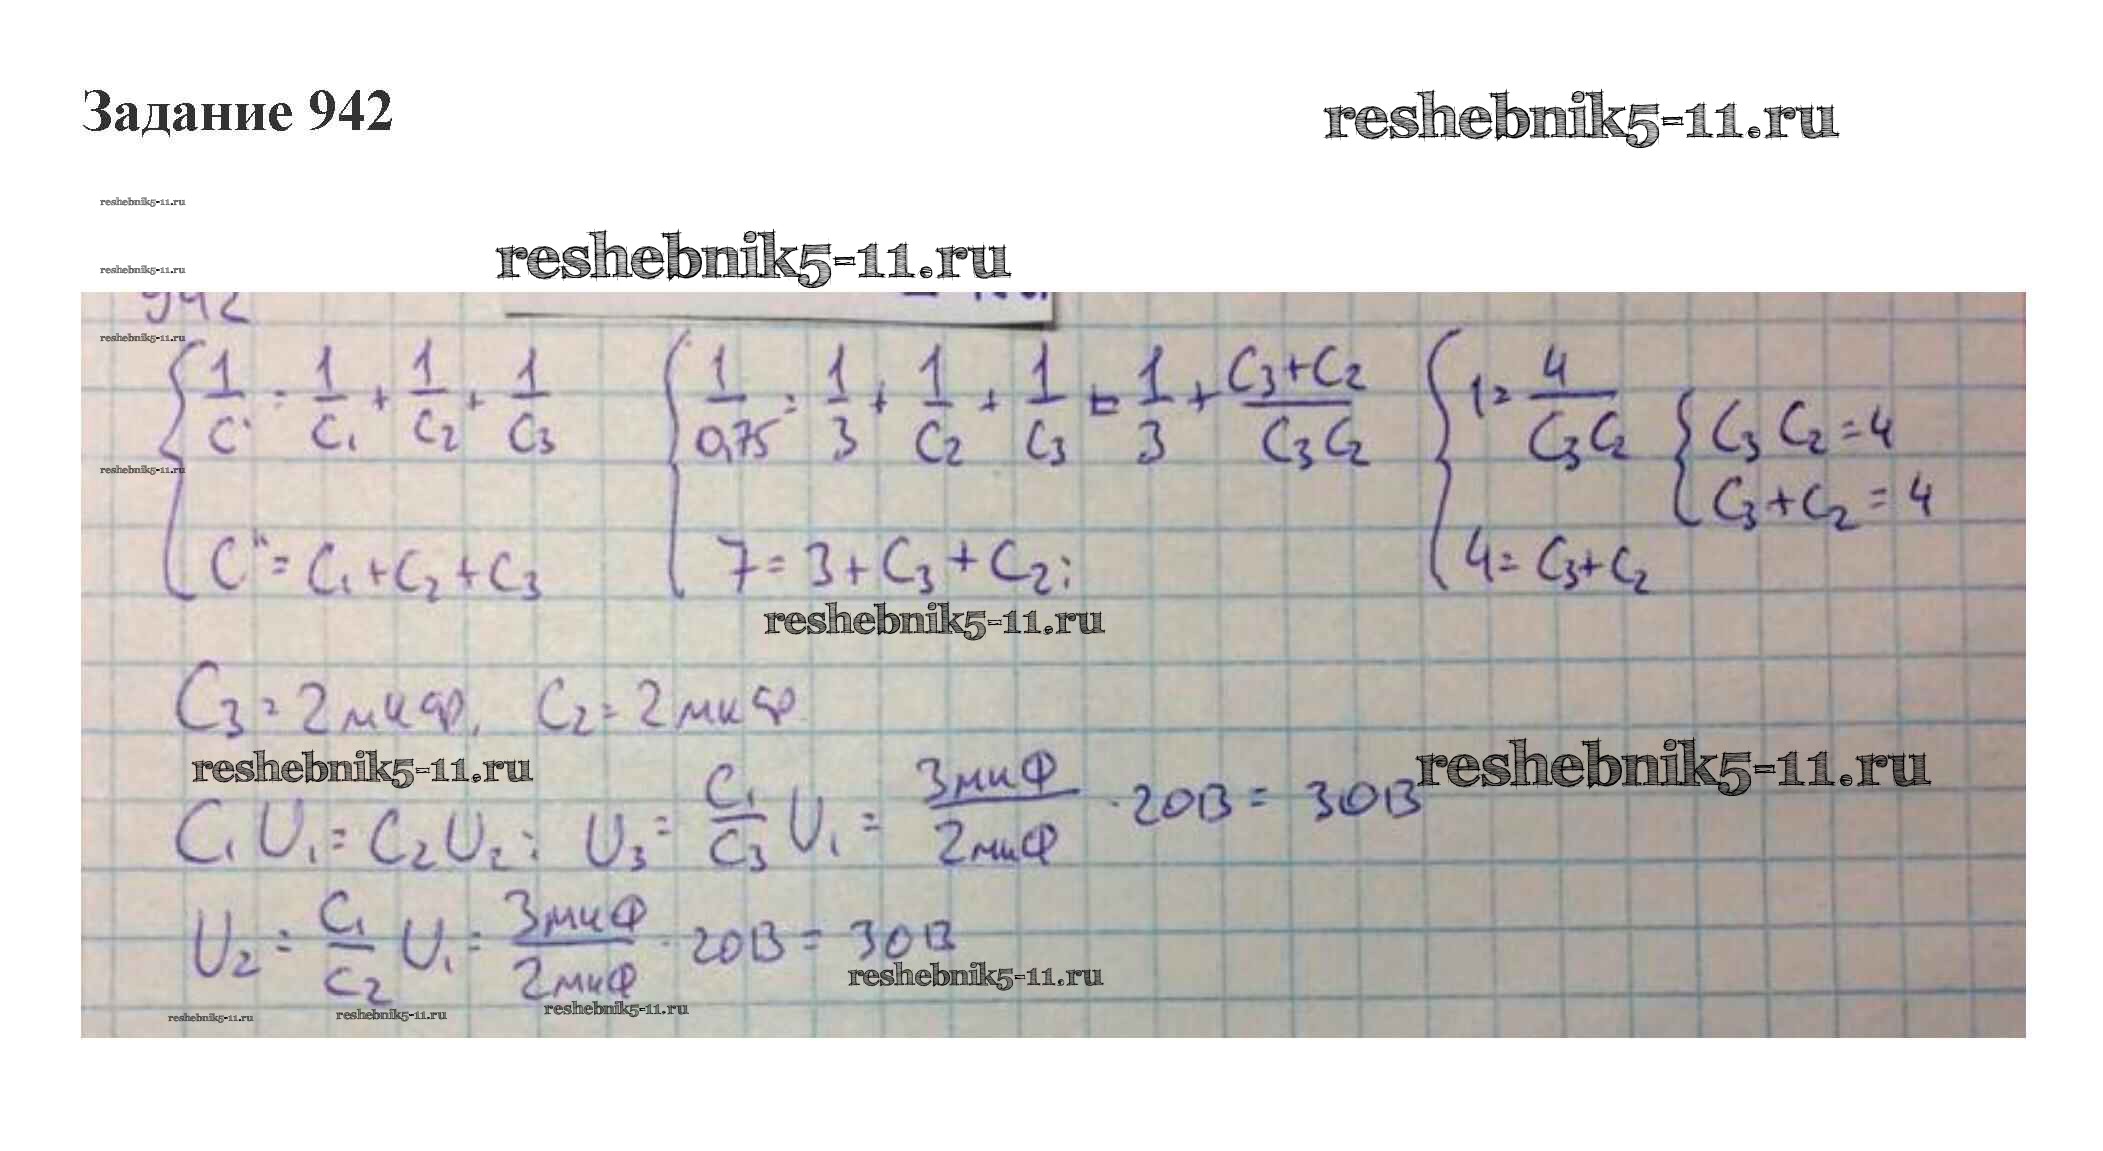 Задание 942
reshebnik5-11.ru
reshebnik5-11.ru
reshebnik5-11.ru
reshebnik5-11.ru
942
reshebnik5-11.ru
1/C' = 1/C₁ + 1/C₂ + 1/C₃
1/0,75 = 1/3 + 1/C₂ + 1/C₃ = 1/3 + (C₃+C₂)/(C₃C₂)
1 = 4/(C₃C₂)
C₃C₂ = 4
C₃+C₂ = 4
reshebnik5-11.ru
C" = C₁+C₂+C₃
7 = 3+C₃+C₂;
4 = C₃+C₂
reshebnik5-11.ru
C₃ = 2мкФ, C₂ = 2мкФ
reshebnik5-11.ru
reshebnik5-11.ru
C₁U₁ = C₂U₂; U₃ = C₁/C₃ U₁ = 3мкФ/2мкФ · 20В = 30В
U₂ = C₁/C₂ U₁ = 3мкФ/2мкФ · 20В = 30В
reshebnik5-11.ru
reshebnik5-11.ru
reshebnik5-11.ru
reshebnik5-11.ru